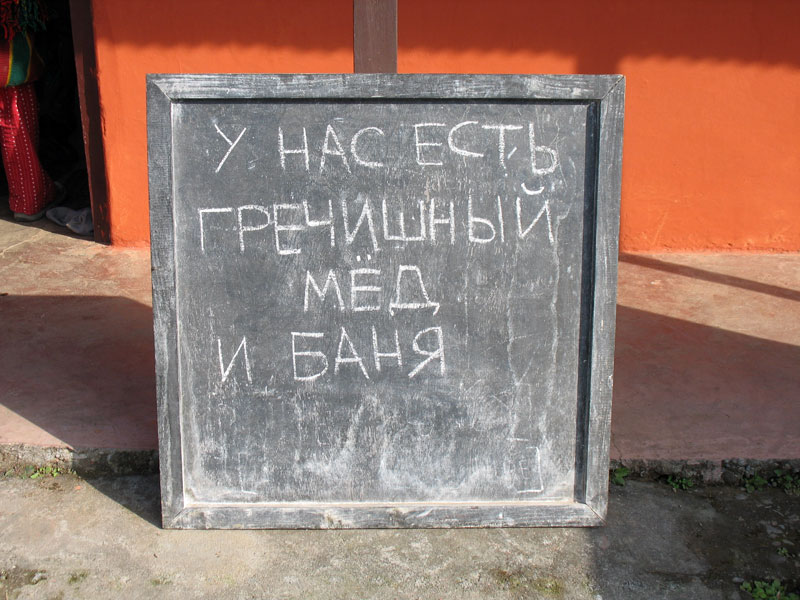 У НАС ЕСТЬ
ГРЕЧИШНЫЙ
МЁД
И БАНЯ